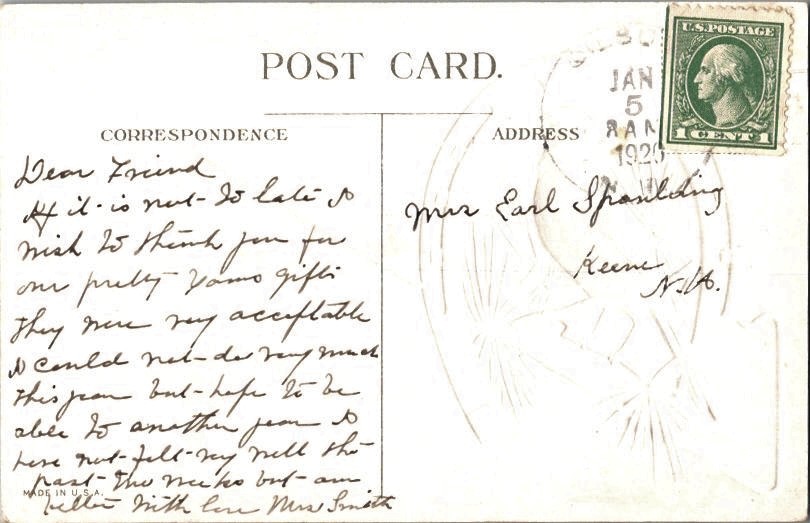 POST CARD.
CORRESPONDENCE
ADDRESS
U.S. POSTAGE
1 CENT 1
JAN
5
8 AM
1920
N.H.
Dear Friend
If it is not to late I
wish to thank you for
our pretty Xmas gifts
they were very acceptable
I could not do very much
this year but hope to be
able to another year I
have not felt very well the
past two weeks but am
better with love Mrs Smith
MADE IN U.S.A.
Mrs Earl Spaulding
Keene
N.H.